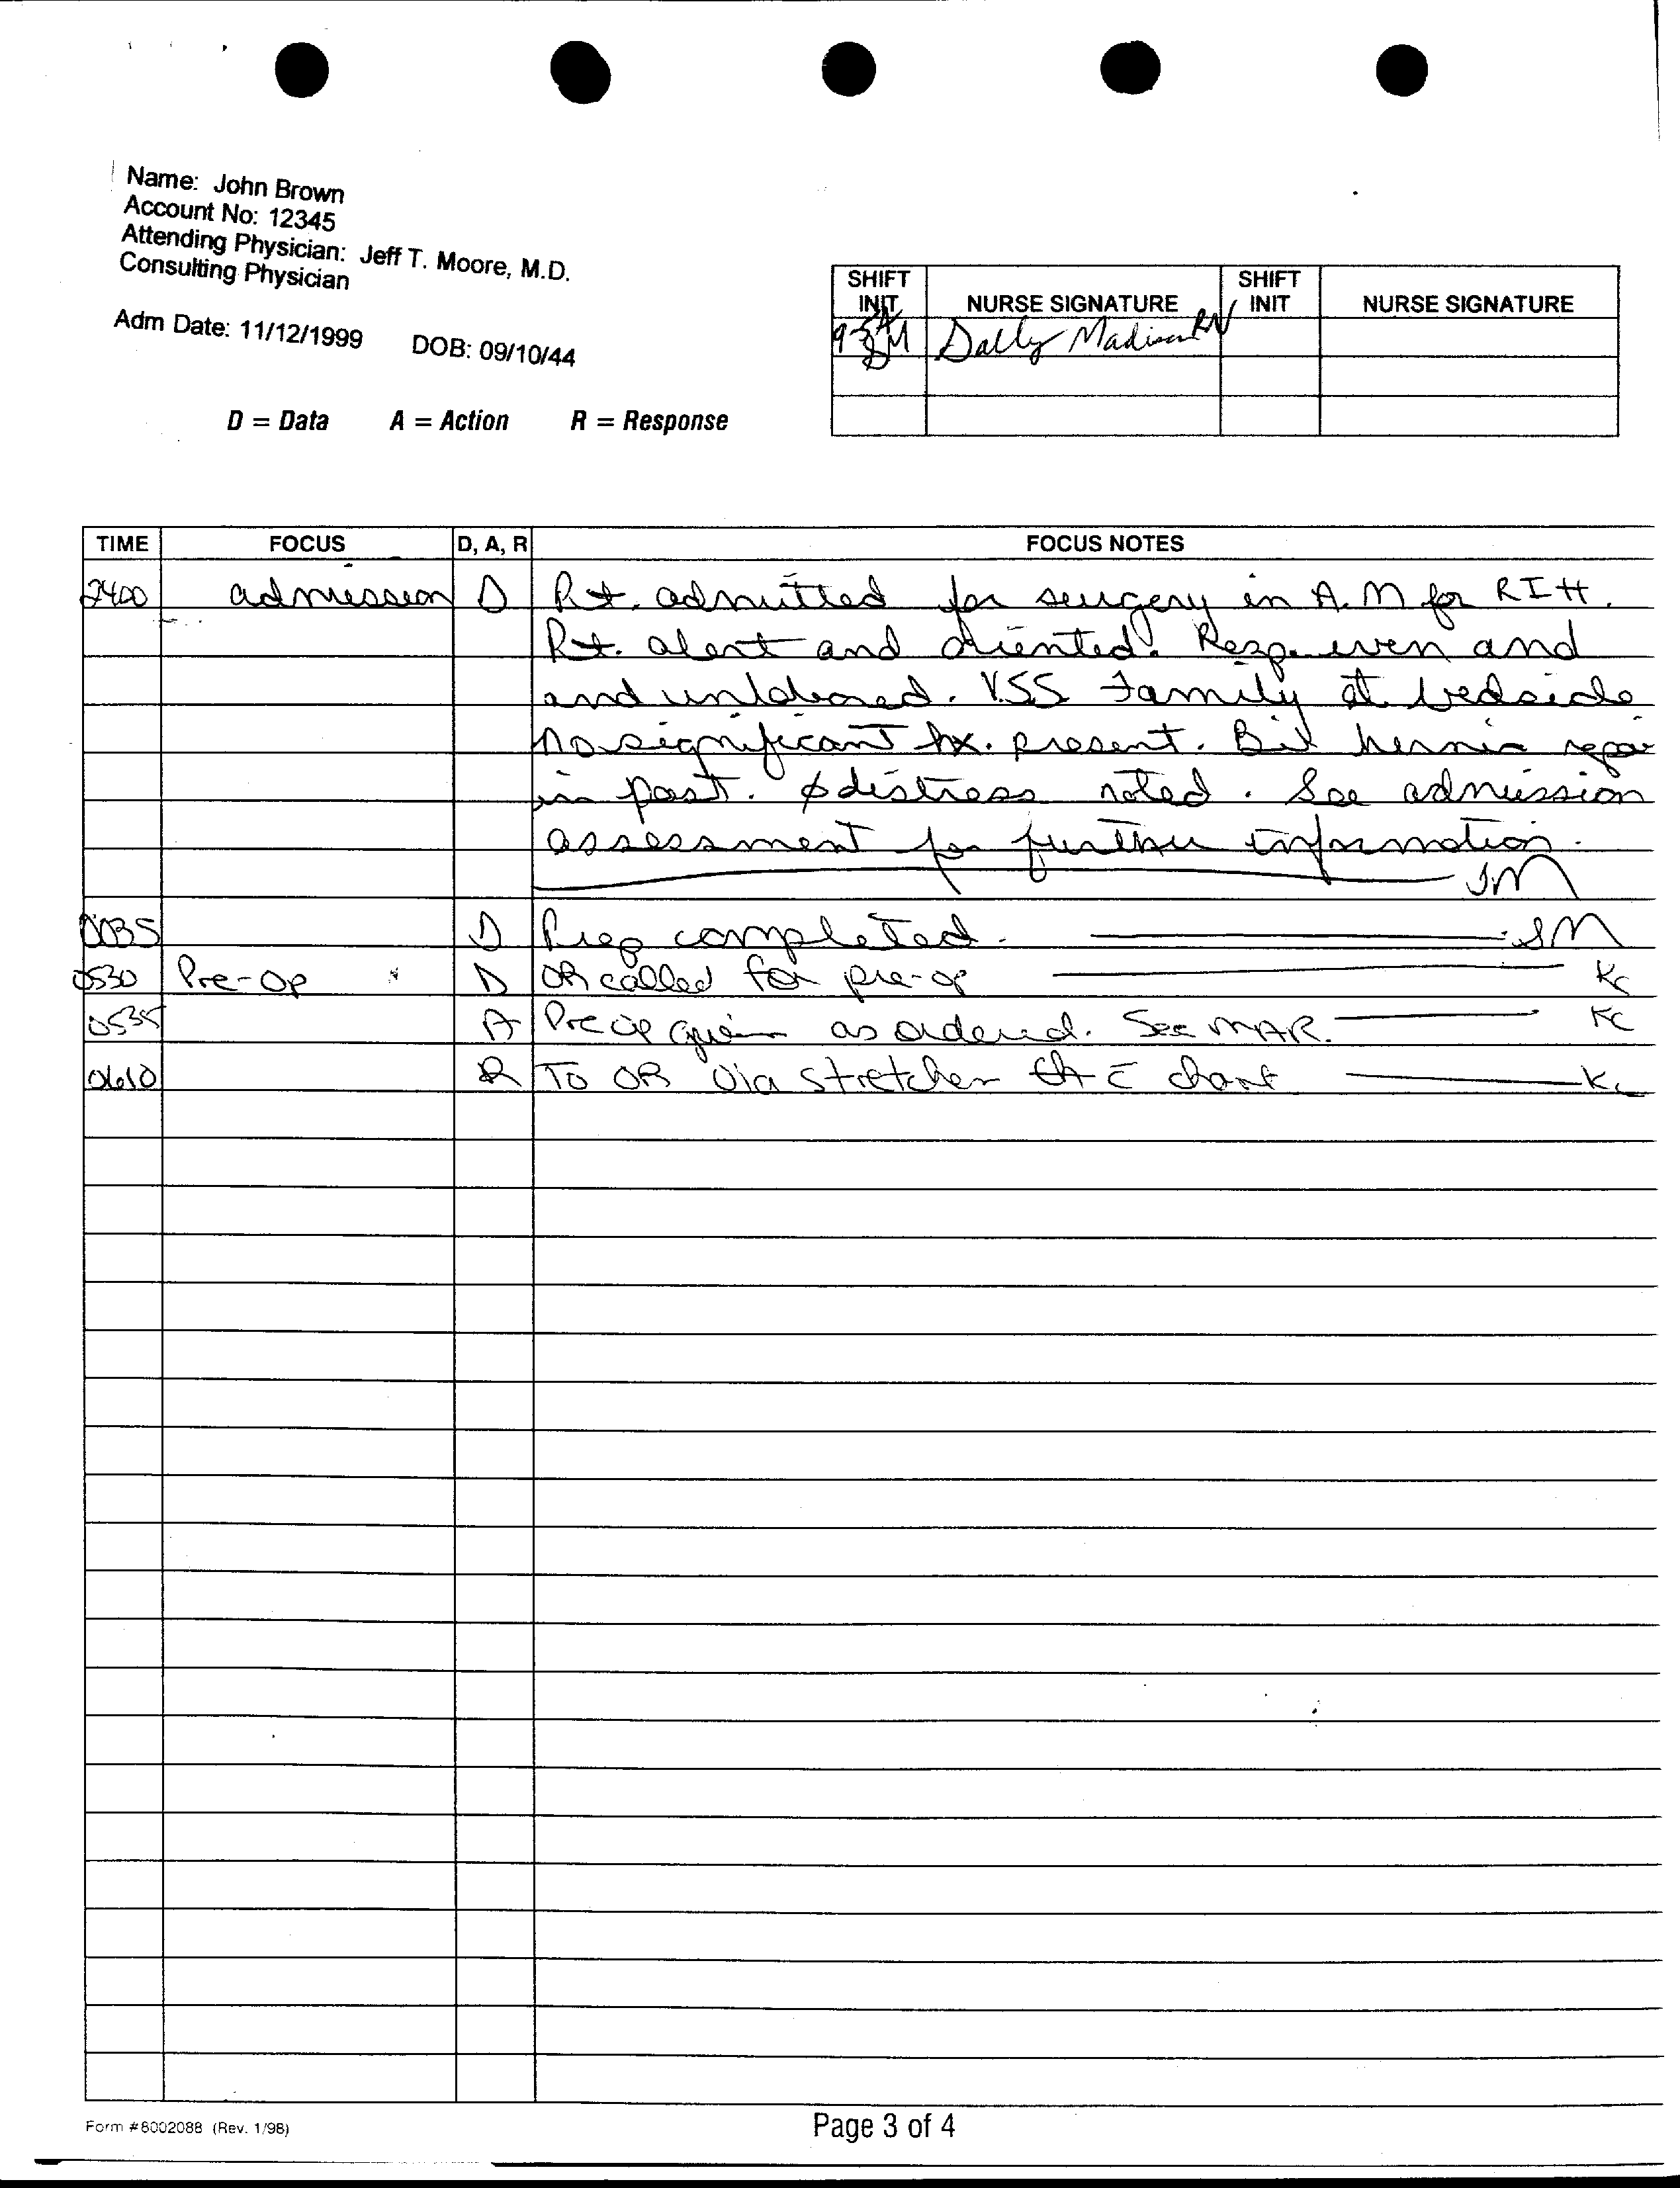 Name: John Brown
Account No: 12345
Attending Physician: Jeff T. Moore, M.D.
Consulting Physician
Adm Date: 11/12/1999 DOB: 09/10/44
D = Data A = Action R = Response
SHIFT INIT NURSE SIGNATURE SHIFT INIT NURSE SIGNATURE
Dally Madison RN
TIME FOCUS D, A, R FOCUS NOTES
2400 admission D Pt. admitted for surgery in A.M for RIH.
Pt. alert and oriented. Resp. even and
and unlabored. VSS Family at bedside
No significant hx. present. Bil hernia repair
in past. ∅ distress noted. See admission
assessment for further information.
SM
0035 D Prep completed. SM
0530 Pre-Op D OR called for pre-op KC
0535 A Pre op given as ordered. See MAR. KC
0610 R To OR via stretcher c̄ chart KC
Form #8002088 (Rev. 1/98)
Page 3 of 4